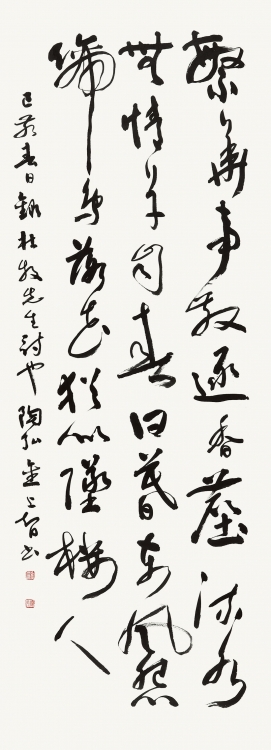 繁華事散逐香塵流水
無情草自春日暮東風怨
啼鳥落花猶似墜樓人
春日錄杜牧先生詩也